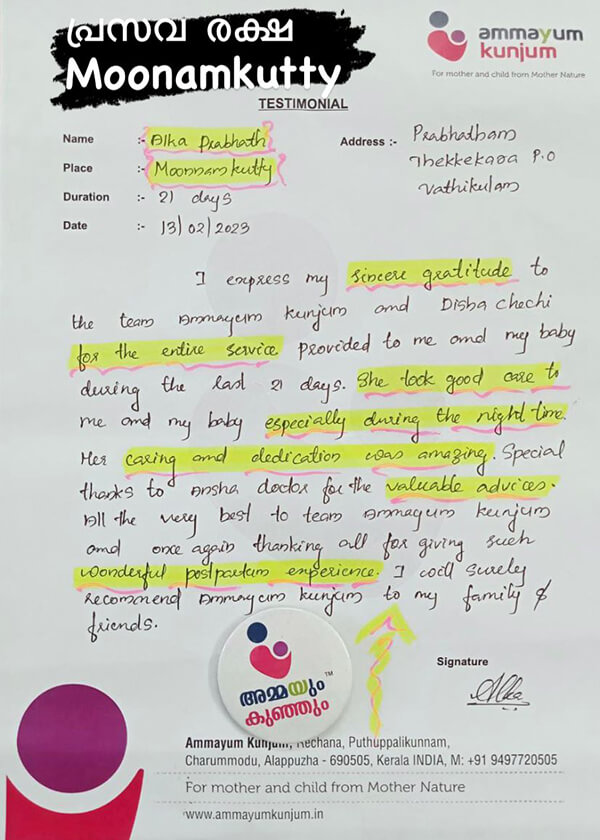 പ്രസവ രക്ഷ
Moonamkutty
ammayum
kunjum
For mother and child from Mother Nature
TESTIMONIAL
Name :- Alka Prabhath
Address :- Prabhatham
Place :- Moonnamkutty
Thekkekara P.O
Duration :- 21 days
Vathikulam
Date :- 13/02/2023
I express my sincere gratitude to
the team Ammayum Kunjum and Disha chechi
for the entire service provided to me and my baby
during the last 21 days. She took good care to
me and my baby especially during the night time.
Her caring and dedication was amazing. Special
thanks to Ansha doctor for the valuable advices.
All the very best to team Ammayum Kunjum
and once again thanking all for giving such
wonderful postpartum experience. I will surely
recommend Ammayum Kunjum to my family &
friends.
Signature
Alka
TM
അമ്മയും
കുഞ്ഞും
Ammayum Kunjum, Rechana, Puthuppalikunnam,
Charummodu, Alappuzha - 690505, Kerala INDIA, M: +91 9497720505
For mother and child from Mother Nature
www.ammayumkunjum.in